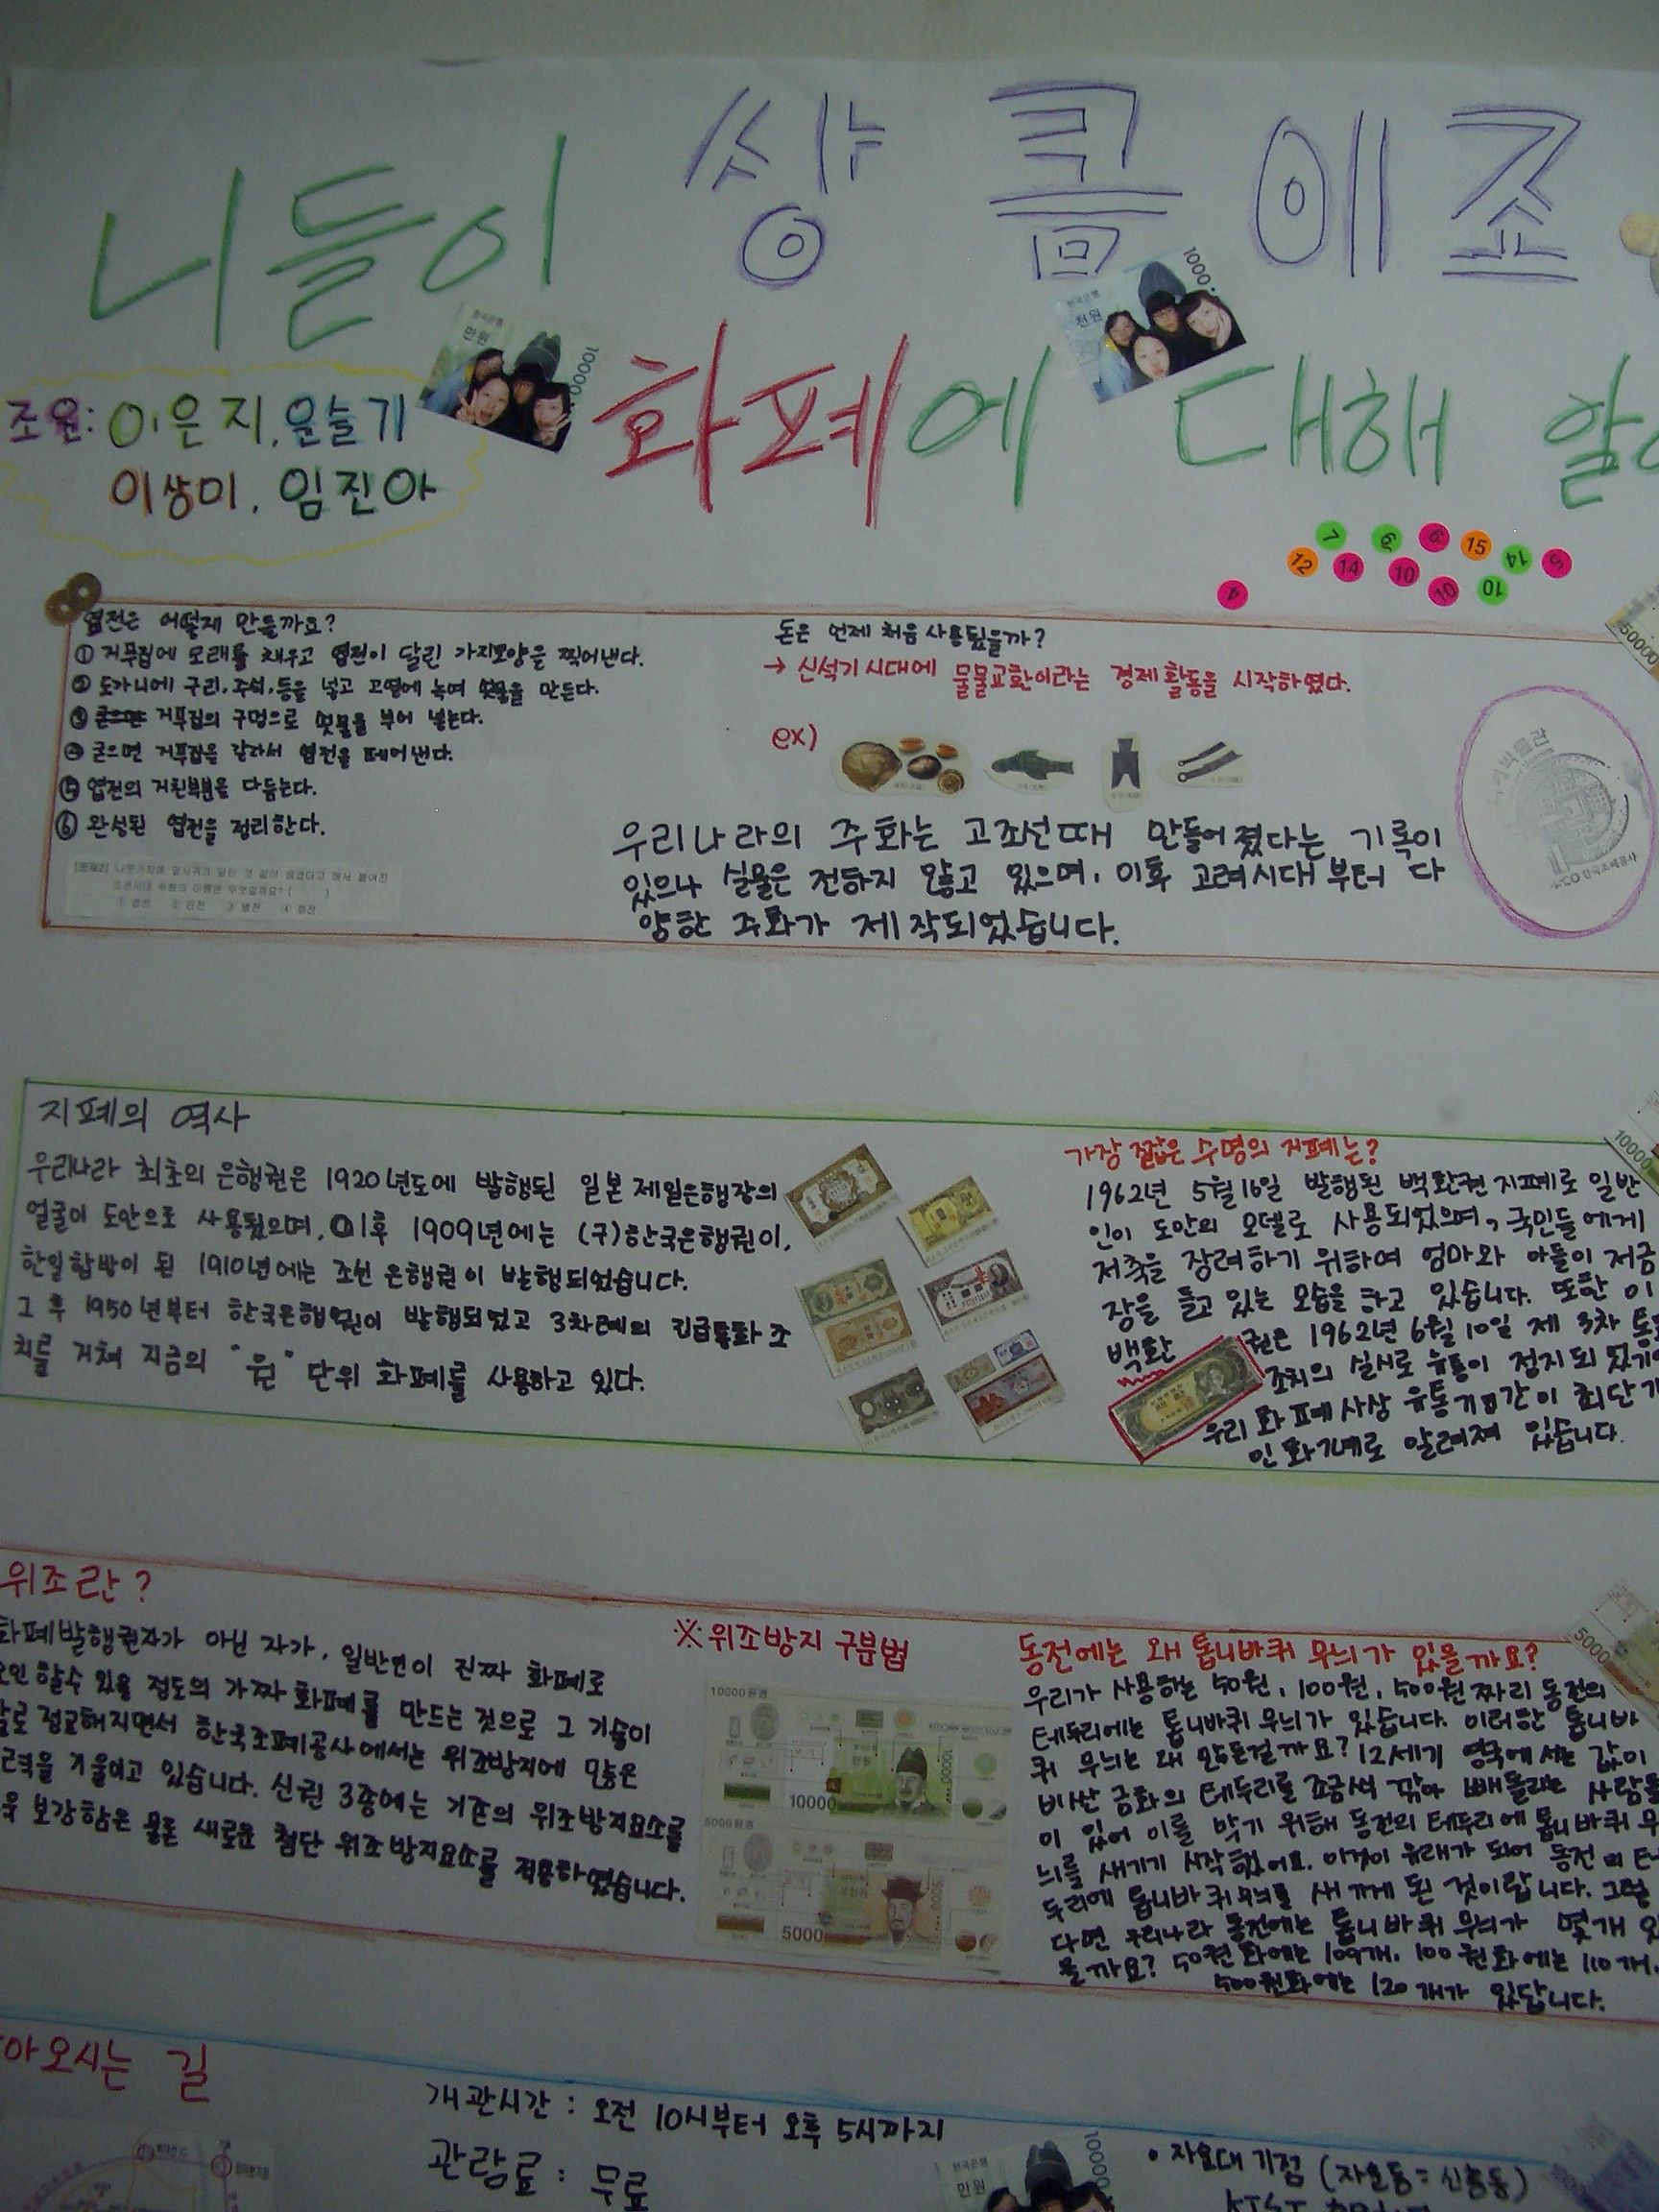 니들이 쌍콤에조
화폐에 대해 알아
한국은행
만원
10000
한국은행
천원
1000
조원: 이은지, 윤슬기
이상미, 임진아
7 6 6 15 14 5
12 14 10 10 10
4
50000
엽전은 어떻게 만들까요?
① 거푸집에 모래를 채우고 엽전이 달린 가지모양을 찍어낸다.
② 도가니에 구리, 주석, 등을 넣고 고열에 녹여 쇳물을 만든다.
③ 거푸집의 구멍으로 쇳물을 부어 넣는다.
④ 굳으면 거푸집을 갈라서 엽전을 떼어낸다.
⑤ 엽전의 거친부분을 다듬는다.
⑥ 완성된 엽전을 정리한다.
[문제2] 나뭇가지에 잎사귀가 달린 것 같이 생겼다고 해서 붙여진
조선시대 주화의 이름은 무엇일까요? ( )
① 엽전 ② 인전 ③ 별전 ④ 화전
돈은 언제 처음 사용됬을까?
→ 신석기 시대에 물물교환이라는 경제활동을 시작하였다.
ex)
우리나라의 주화는 고조선때 만들어졌다는 기록이
있으나 실물은 전하지 않고 있으며, 이후 고려시대부터 다
양한 주화가 제작되었습니다.
화폐박물관
한국조폐공사
지폐의 역사
우리나라 최초의 은행권은 1920년도에 발행된 일본 제일은행장의
얼굴이 도안으로 사용됬으며, 이후 1909년에는 (구)한국은행권이,
한일합방이 된 1910년에는 조선 은행권이 발행되었습니다.
그 후 1950년부터 한국은행권이 발행되었고 3차례의 긴급통화 조
치를 거쳐 지금의 "원" 단위 화폐를 사용하고 있다.
가장 짧은 수명의 지폐는?
1962년 5월 16일 발행된 백환권 지폐로 일반
인이 도안의 모델로 사용되었으며, 국민들에게
저축을 장려하기 위하여 엄마와 아들이 저금
장을 들고 있는 모습을 하고 있습니다. 또한 이
백환권은 1962년 6월 10일 제 3차 통
조치의 실시로 유통이 정지되었기
우리 화폐사상 유통기간이 최단기
인 화폐로 알려져 있습니다.
10000
위조란?
화폐발행권자가 아닌 자가, 일반인이 진짜 화폐로
오인 할수 있을 정도의 가짜 화폐를 만드는 것으로 그 기술이
날로 정교해지면서 한국조폐공사에서는 위조방지에 많은
노력을 기울이고 있습니다. 신권 3종에는 기존의 위조방지요소를
보강함은 물론 새로운 첨단 위조방지요소를 적용하였습니다.
※위조방지 구분법
10000원권
10000
5000원권
5000
5000
동전에는 왜 톱니바퀴 무늬가 있을까요?
우리가 사용하는 50원, 100원, 500원 짜리 동전의
테두리에는 톱니바퀴 무늬가 있습니다. 이러한 톱니바
퀴 무늬는 왜 만든걸까요? 12세기 영국에서는 값이
비싼 금화의 테두리를 조금씩 깎아 빼돌리는 사람들
이 있어 이를 막기 위해 동전의 테두리에 톱니바퀴 무
늬를 새기기 시작했어요. 이것이 유래가 되어 동전의 테
두리에 톱니바퀴무늬를 새기게 된 것이랍니다. 그렇
다면 우리나라 동전에는 톱니바퀴 무늬가 몇개 있
을까요? 50원화에는 109개, 100원화에는 110개,
500원화에는 120개가 있답니다.
아오시는 길
개관시간 : 오전 10시부터 오후 5시까지
관람료 : 무료
만원
• 자운대 기점 (자운동=신흥동)